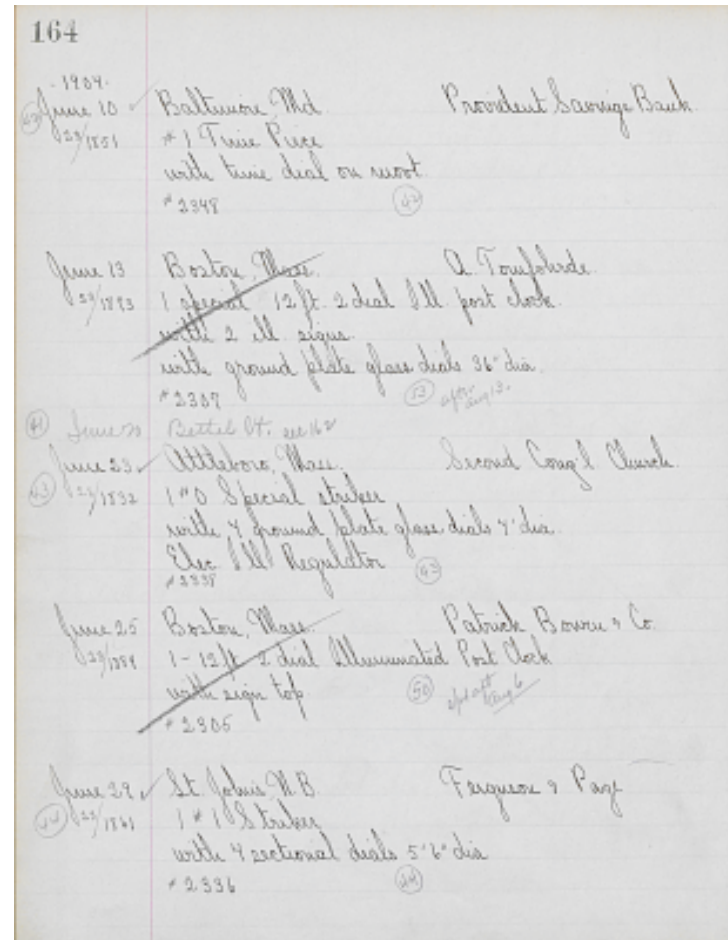 164
- 1909 -
June 10 ✓ Baltimore, Md. Provident Savings Bank.
42 29/1851 # 1 Time Piece
with time dial on
# 2348 42
June 13 Boston, Mass. A.
29/1893 1 special 12 ft. 2 dial Ill. post clock.
with 2 ill. signs.
with ground plate glass dials 36" dia.
# 2307 53 after Aug 13.
41 June 20 Bethel Vt. see 162
June 23 ✓ Attleboro, Mass. Second Cong'l Church.
43 1832 1 # 0 Special striker
with 4 ground plate glass dials 7' dia.
Elec. Ill. Regulator
# 2338 43
June 25 Boston, Mass. Patrick & Co.
1 - 12 ft. 2 dial Illuminated Post Clock
with sign top. 50 aft Aug 6
# 2305
June 29 ✓ St. Johns N.B. Ferguson & Page
44 29/1861 1 # 1 Striker
with 4 sectional dials 5' 6" dia
# 2336 44